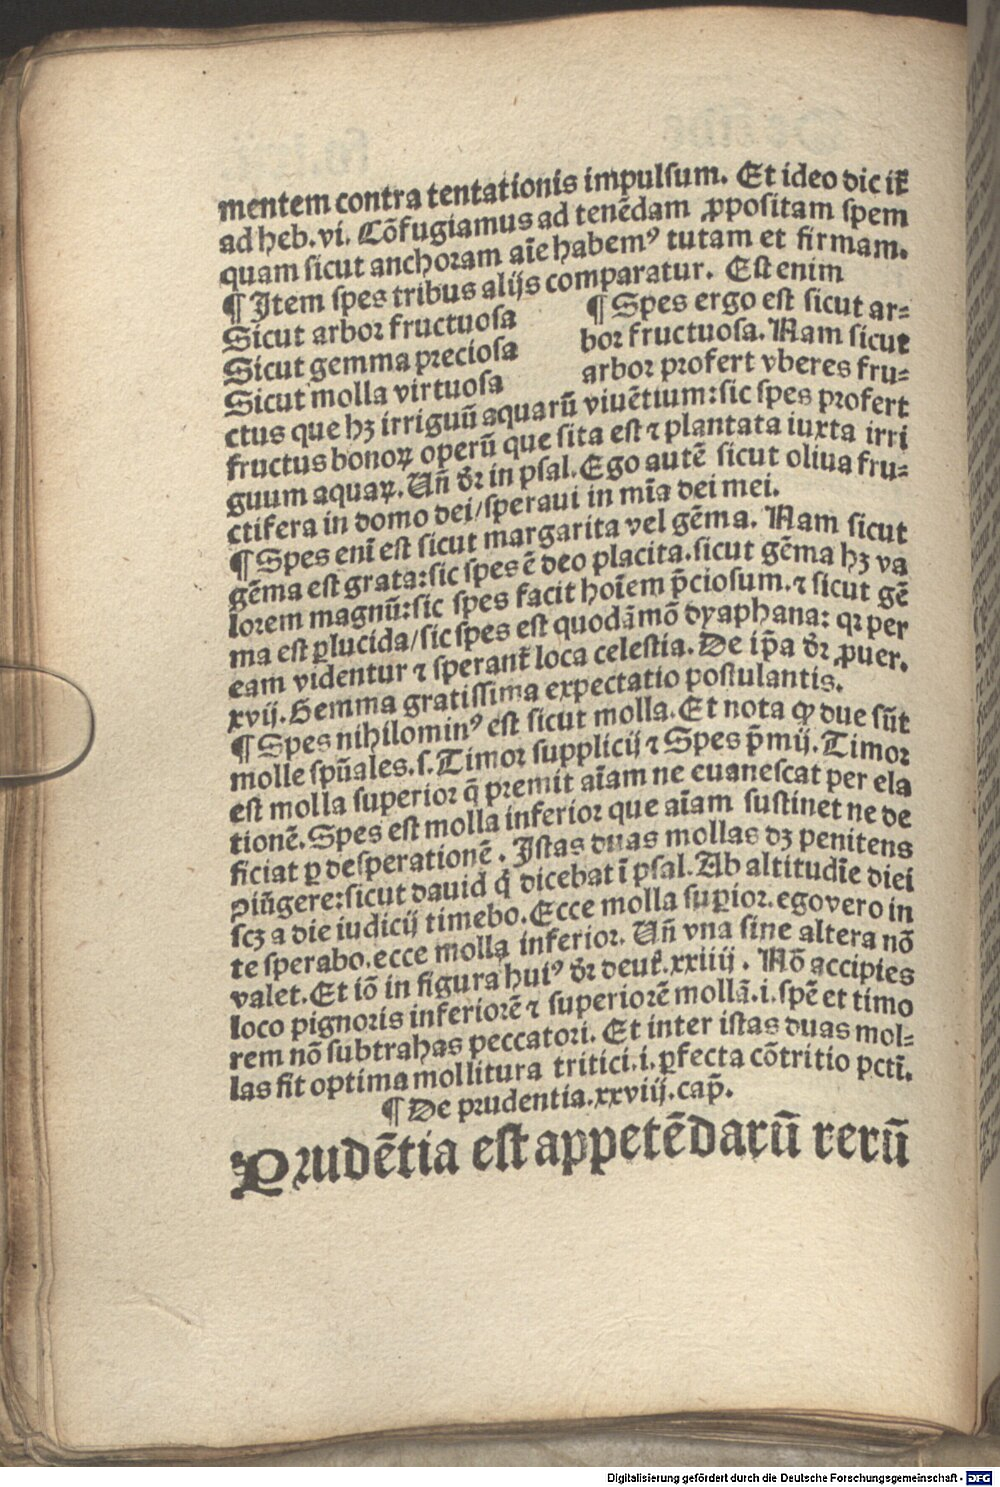 mentem contra tentationis impulsum. Et ideo dic ik̄
ad heb.vi. Cōfugiamus ad tenēdam ꝓpositam spem
quam sicut anchoram aīe habemꝰ tutam et firmam.
¶ Item spes tribus alijs comparatur. Est enim
Sicut arbor fructuosa
Sicut gemma preciosa
Sicut molla virtuosa
¶ Spes ergo est sicut ar-
bor fructuosa. Nam sicut
arbor profert vberes fru-
ctus que hꝫ irriguū aquarū viuētium: sic spes profert
fructus bonoꝝ operū que sita est ⁊ plantata iuxta irri
guum aquaꝝ. Uñ dr̄ in psal. Ego autē sicut oliua fru-
ctifera in domo dei/speraui in mīa dei mei.
¶ Spes enī est sicut margarita vel gēma. Nam sicut
gēma est grata: sic spes ē deo placita. sicut gēma hꝫ va
lorem magnū: sic spes facit hoīem p̄ciosum. ⁊ sicut gē
ma est ꝑlucida/sic spes est quodāmō dyaphana: qꝛ per
eam videntur ⁊ sperant̄ loca celestia. De ip̄a dr̄ ꝓuer.
xvij. Gemma gratissima expectatio postulantis.
¶ Spes nihilominꝰ est sicut molla. Et nota ꝙ due sūt
molle spūales. s. Timor supplicij ⁊ Spes p̄mij. Timor
est molla superior q̄ premit aīam ne euanescat per ela
tionē. Spes est molla inferior que aīam sustinet ne de
ficiat ꝑ desperationē. Istas duas mollas dꝫ penitens
ↄiūgere: sicut dauid q̇ dicebat ī psal. Ab altitudīe diei
scꝫ a die iudicij timebo. Ecce molla suꝑior. ego vero in
te sperabo. ecce molla inferior. Uñ vna sine altera nō
valet. Et iō in figura huiꝰ dr̄ deut̄. xxiiij. Nō accipies
loco pignoris inferiorē ⁊ superiorē mollā. i. spē et timo
rem nō subtrahas peccatori. Et inter istas duas mol-
las fit optima mollitura tritici. i. ꝑfecta cōtritio pctī.
¶ De prudentia. xxviij. cap̄.
Prudētia est appetēdarū rerū
Digitalisierung gefördert durch die Deutsche Forschungsgemeinschaft - DFG